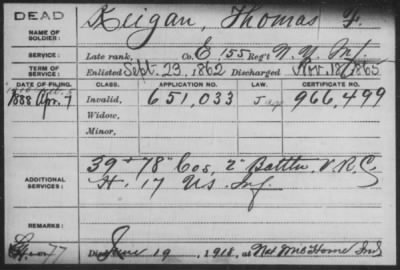 DEAD
NAME OF SOLDIER: Keigan, Thomas F.
SERVICE: Late rank, Co. E, 155 Reg't N.Y. Inf.
TERM OF SERVICE: Enlisted Sept. 23, 1862 Discharged Nov. 18, 1865
DATE OF FILING. CLASS. APPLICATION NO. LAW. CERTIFICATE NO.
1888 Apr. 7 Invalid, 651,033 966,499
Widow,
Minor,
ADDITIONAL SERVICES: 39 + 78" Cos, 2" Battn V.R.C.
H. 17 US. Inf.
REMARKS:
Died June 19, 1918, at Nat Home Ind